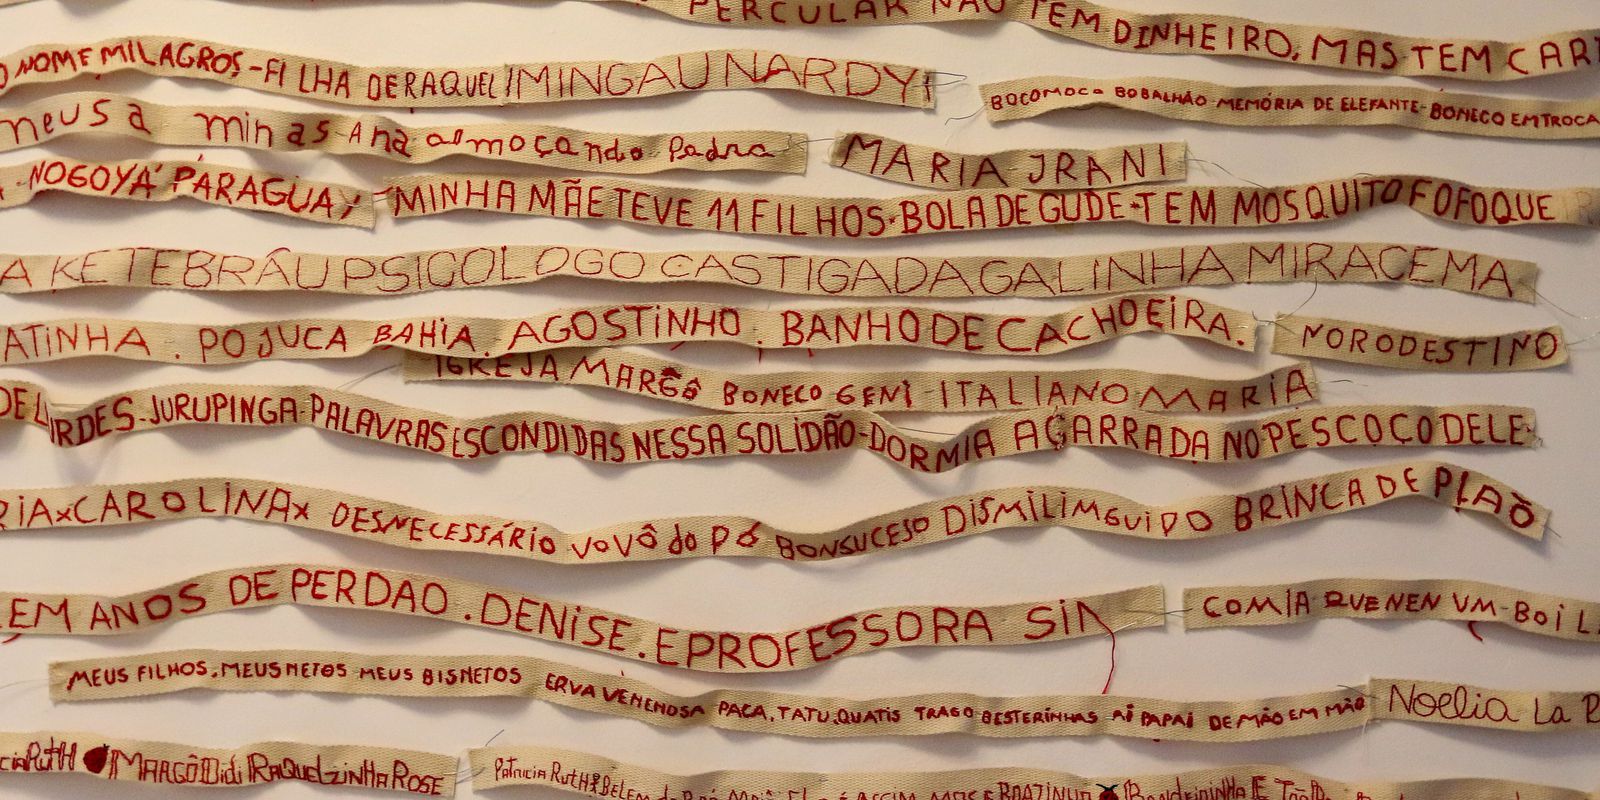 PERCULAR NÃO TEM DINHEIRO, MAS TEM CAR
O NOME MILAGROS-FILHA DERAQUEL MINGAU NARDY
BOCOMOCO BOBALHÃO MEMÓRIA DE ELEFANTE-BONECO EM TROCA
meus a minas Ana almoçando Pedra
MARIA IRANI
NOGOYÁ PARAGUAY
MINHA MÃE TEVE 11 FILHOS-BOLA DE GUDE-TEM MOSQUITO FOFOQUE
A KETEBRÂU PSICOLOGO CASTIGADA GALINHA MIRACEMA
ATINHA. POJUCA BAHIA. AGOSTINHO. BANHO DE CACHOEIRA.
NORODESTINO
IGREJA MARGÔ BONECO GENI-ITALIANO MARIA
DE LURDES-JURUPINGA-PALAVRAS ESCONDIDAS NESSA SOLIDÃO-DORMIA AGARRADA NO PESCOÇO DELE
RIAxCAROLINAx DESNECESSÁRIO VOVÔ do PÓ BONSUCESO DISMILIMGUIDO BRINCA DE PIAÕ
EM ANOS DE PERDAO. DENISE. E PROFESSORA SIM
COMIA QUE NEN UM-BOI L
MEUS FILHOS. MEUS NETOS MEUS BISNETOS ERVA VENENOSA PACA, TATU, QUATIS TRAGO BESTERINHAS AÍ PAPAI DE MÃO EM MÃO
NOElia La R
cia RutH MARGÔ Didi RAQUElzinHA ROSE
PAtriciA RutH BELEM do PARÁ